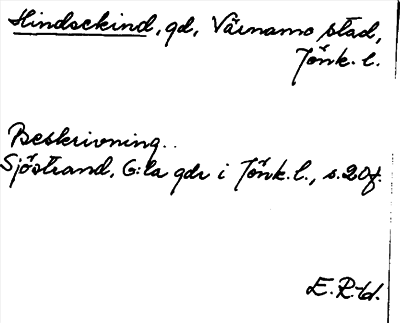 Hindsekind, gd, Värnamo stad,
Jönk. l.
Beskrivning..
Sjöstrand, G:la gdr i Jönk. l., s. 20f.
E. R-td.